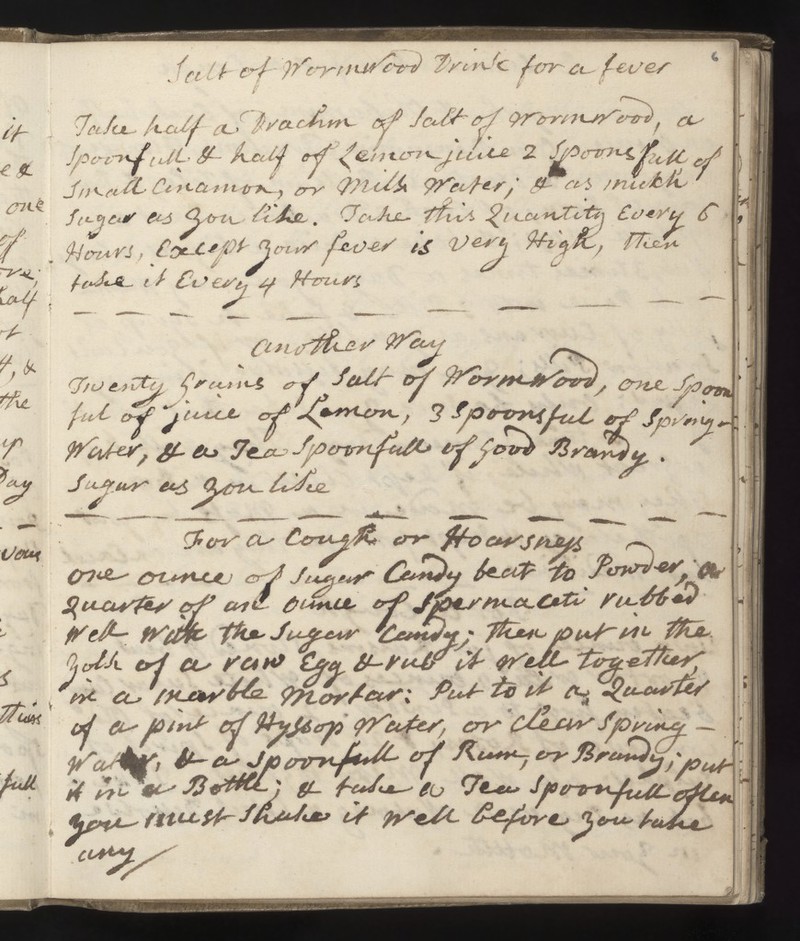 6
Salt of Wormwood Drink for a fever
Take half a Drachm of Salt of wormwood, a
Spoonfull & half of Lemon juice 2 Spoonsfull of
Small Cinamon, or Milk Water; & as mukh
Sugar as you like. Take this Quantity Every 6
Hours, Except your fever is very High, then
take it Every 4 Hours
another Way
Twenty Grains of Salt of Wormwood, one Spoon
ful of juice of Lemon, 3 Spoonsful of Spring-
Water, & a Tea Spoonfull of Good Brandy.
Sugar as you like
For a Cough or Hoarsness
one ounce of Sugar Candy beat to Powder, a
Quarter of an ounce of Spermaceti rubbed
Well with the Sugar Candy; then put in the
yolk of a raw Egg & rub it well together,
in a marble mortar: Put to it a Quarter
of a pint of Hyssop Water, or Clear Spring-
Water, & a Spoonfull of Rum, or Brandy; put
it in a Bottle; & take a Tea Spoonfull often
you must Shake it well before you take
any
it
e &
one
of
half
the
up
Day
full